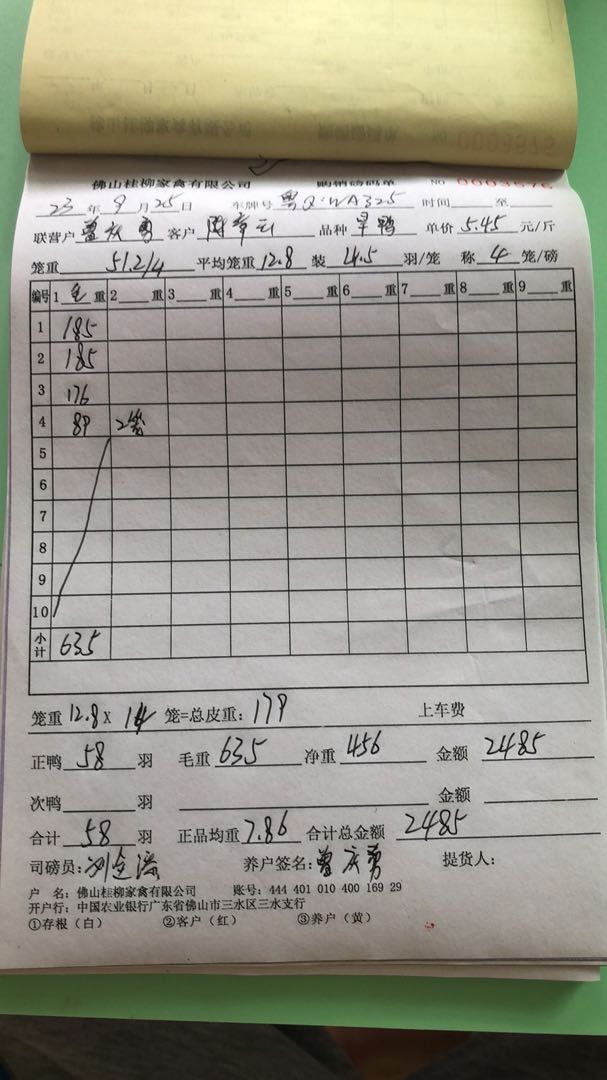 佛山桂柳家禽有限公司 购销磅码单 NO 0003576
23 年 9 月 25 日 车牌号 粤Q·WA325 时间 至
联营户 曾庆勇 客户 品种 旱鸭 单价 5.45 元/斤
笼重 51.2/4 平均笼重 12.8 装 14.5 羽/笼 称 4 笼/磅
编号 1 毛 重 2 重 3 重 4 重 5 重 6 重 7 重 8 重 9 重
1 185
2 185
3 176
4 89 2笼
5
6
7
8
9
10
小计 635
笼重 12.8 X 14 笼=总皮重: 179 上车费
正鸭 58 羽 毛重 635 净重 456 金额 2485
次鸭 羽 金额
合计 58 羽 正品均重 7.86 合计总金额 2485
司磅员: 养户签名: 曾庆勇 提货人:
户 名: 佛山桂柳家禽有限公司 账号: 444 401 010 400 169 29
开户行: 中国农业银行广东省佛山市三水区三水支行
①存根（白） ②客户（红） ③养户（黄）